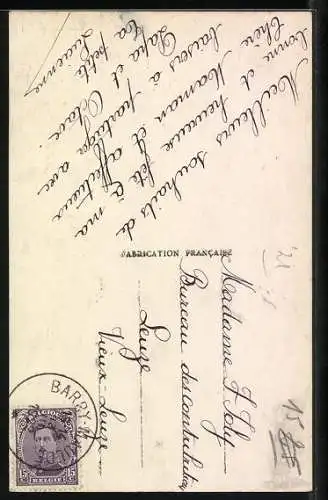 Meilleurs souhaits de
bonne et heureuse fête à ma
chère Maman et affectueux
baisers à partager avec
Papa et Octave.
Ta petite
Lucienne
FABRICATION FRANÇAISE
Madame F. Joly
Bureau des contributions
Leuze
Vieux Leuze
BARRY-M
BELGIQUE
15 BELGIË 15
'21
15